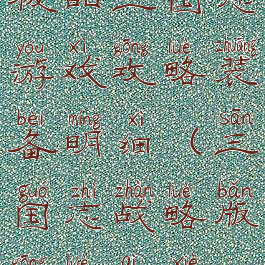 yóu xì gōng lüè zhuāng
游戏攻略装
bèi míng xì sān
备明细（三
guó zhì zhàn lüè bǎn
国志战略版